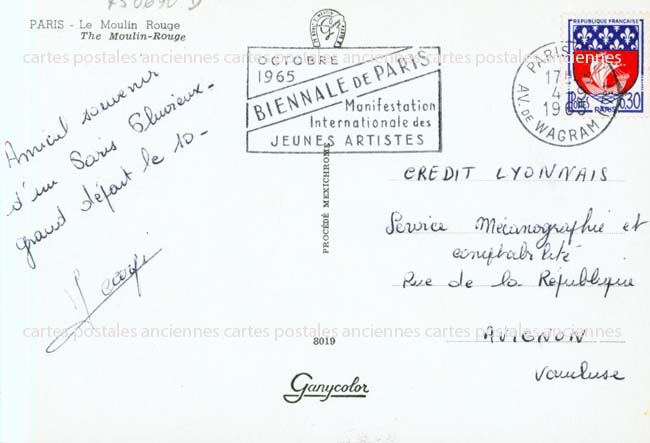 PARIS - Le Moulin Rouge
The Moulin-Rouge
Amical souvenir
d'un Paris Pluvieux -
grand départ le 10 -
OCTOBRE
1965
BIENNALE DE PARIS
Manifestation
Internationale des
JEUNES ARTISTES
REPUBLIQUE FRANÇAISE
0,30
PARIS
17
4-9
1965
AV. DE WAGRAM
PROCÉDÉ MEXICHROME
CREDIT LYONNAIS
Service Mécanographie et
comptabilité
Rue de la République
AVIGNON
Vaucluse
cartes postales anciennes cartes postales anciennes cartes postales anciennes
8019
Ganycolor